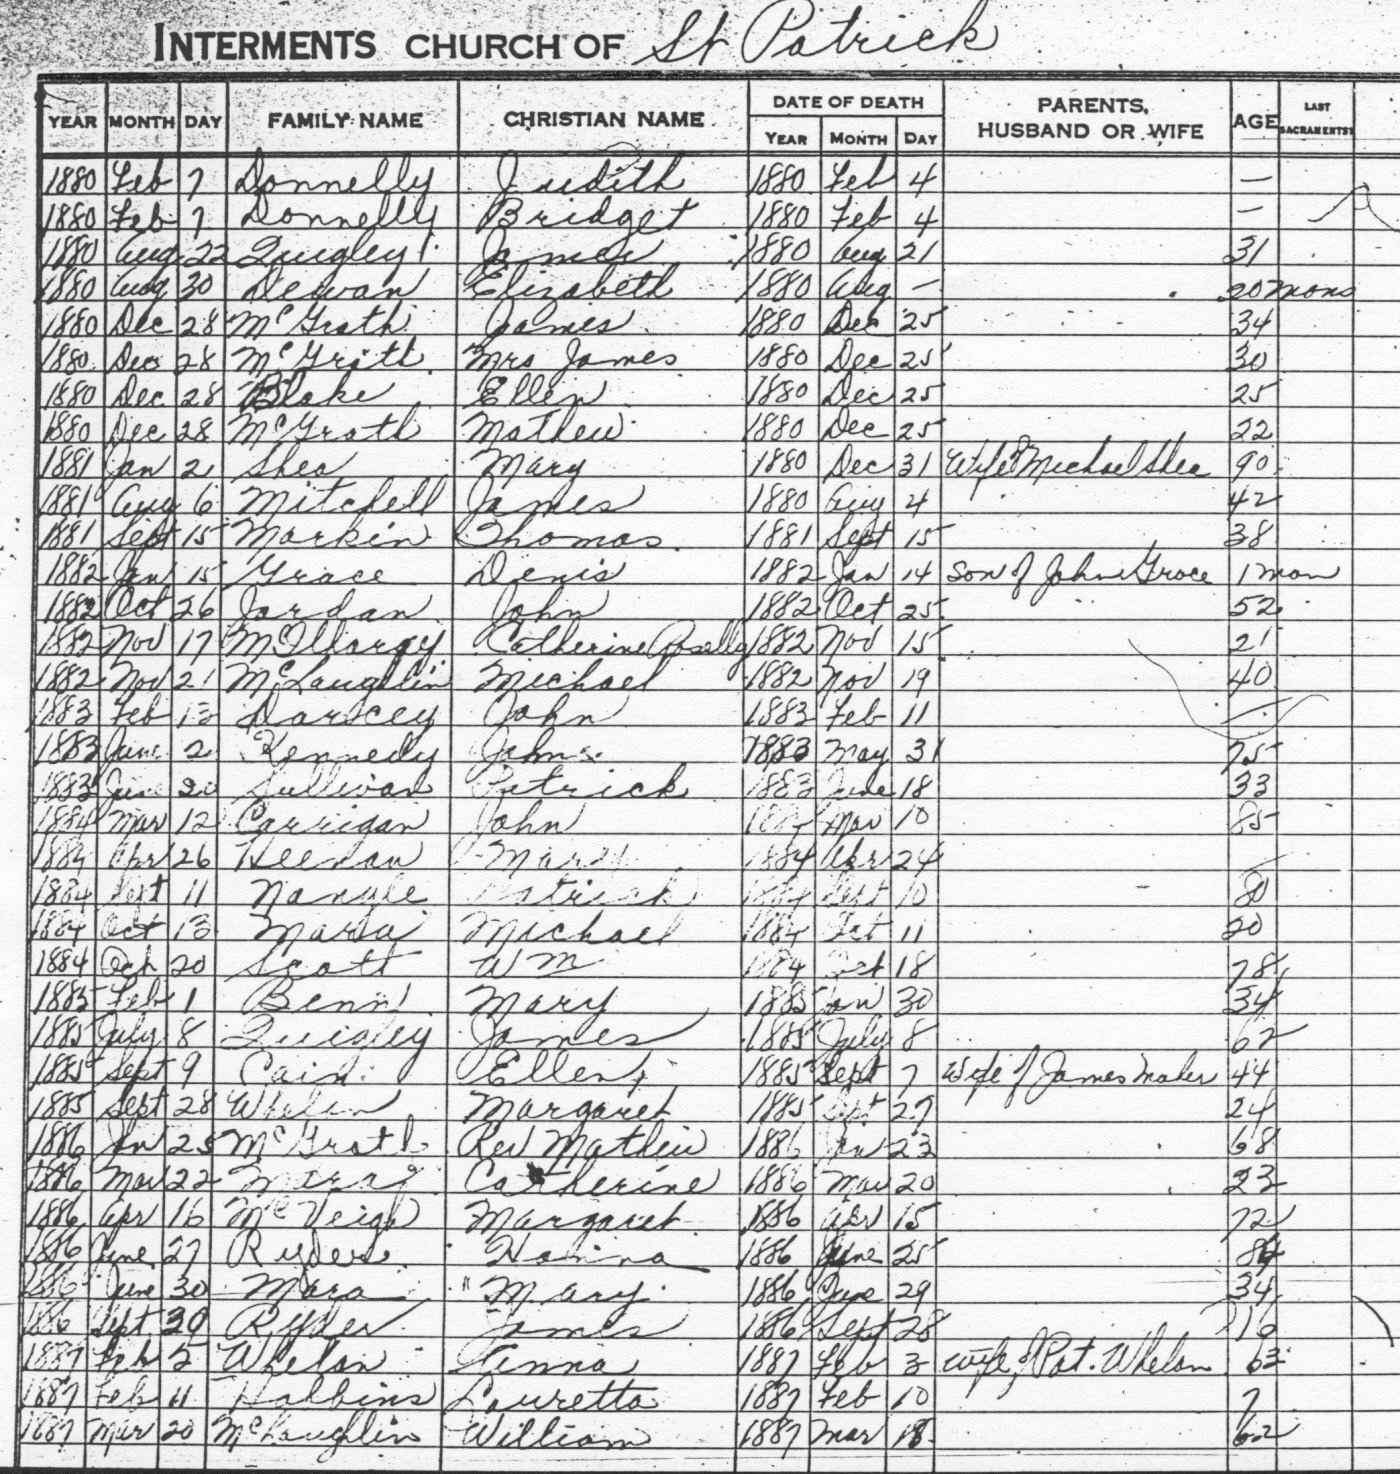 INTERMENTS CHURCH OF St Patrick
YEAR MONTH DAY FAMILY NAME CHRISTIAN NAME DATE OF DEATH YEAR MONTH DAY PARENTS, HUSBAND OR WIFE AGE LAST SACRAMENTS
1880 Feb 7 Donnelly Judith 1880 Feb 4 —
1880 Feb 7 Donnelly Bridget 1880 Feb 4 —
1880 Aug 22 Quigley James 1880 Aug 21 31
1880 Aug 30 Dewan Elizabeth 1880 Aug — 20 mons
1880 Dec 28 McGrath James 1880 Dec 25 34
1880 Dec 28 McGrath Mrs James 1880 Dec 25 30
1880 Dec 28 Blake Ellen 1880 Dec 25 25
1880 Dec 28 McGrath Mathew 1880 Dec 25 22
1881 Jan 2 Shea Mary 1880 Dec 31 Wife of Michael Shea 90
1881 Aug 6 Mitchell James 1880 Aug 4 42
1881 Sept 15 Markin Thomas 1881 Sept 15 38
1882 Jan 15 Grace Denis 1882 Jan 14 son of John Grace 1 mon
1882 Oct 26 Jordan John 1882 Oct 25 52
1882 Nov 17 McIllargy Catherine 1882 Nov 15 21
1882 Nov 21 McLaughlin Michael 1882 Nov 19 40
1883 Feb 13 Darscey John 1883 Feb 11 —
1883 June 2 Kennedy John 1883 May 31 75
1883 June 20 Sullivan Patrick 1883 June 18 33
1884 Mar 12 Carrigan John Mar 10 85
1884 Apr 26 Heenan Mary 1884 Apr 24
1884 Sept 11 Nangle Patrick 1884 Sept 10 80
1884 Oct 13 Mara Michael 1884 Oct 11 20
1884 Oct 20 Scott Wm 1884 Oct 18 78
1885 Feb 1 Benn Mary 1885 Jan 30 34
1885 July 8 Quigley James 1885 July 8 62
1885 Sept 9 Cain Ellen 1885 Sept 7 wife of James Maher 44
1885 Sept 28 Whelan Margaret 1885 Sept 27 24
1886 Jan 25 McGrath Rev Mathew 1886 Jan 23 68
1886 Mar 22 Catherine 1886 Mar 20 23
1886 Apr 16 McVeigh Margaret 1886 Apr 15 72
1886 June 27 Ryder Hanna 1886 June 25
1886 June 30 Mara Mary 1886 June 29 34
1886 Sept 30 Ryder James 1886 Sept 28
1887 Feb 5 Whelan Anna 1887 Feb 3 wife of Pat. Whelan 63
1887 Feb 11 Halbins Lauretta 1887 Feb 10 7
1887 Mar 20 McLaughlin William 1887 Mar 18 62